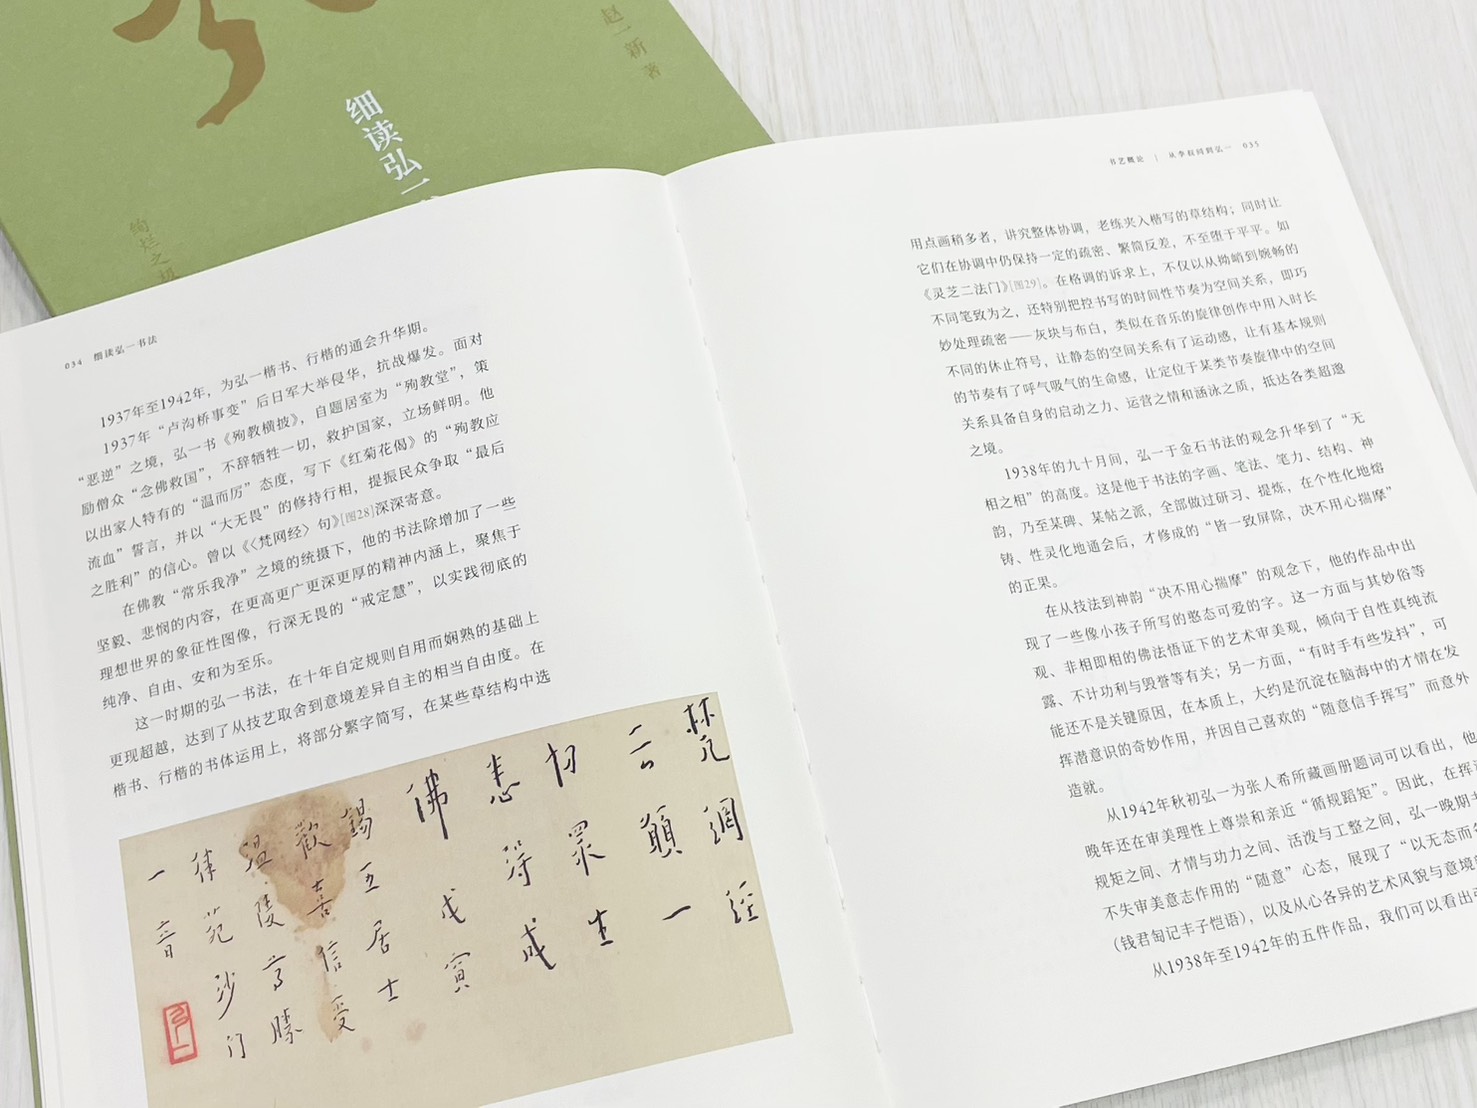 赵一新 著
细读弘一
绚烂之
034 细读弘一书法
1937年至1942年，为弘一楷书、行楷的通会升华期。
1937年“卢沟桥事变”后日军大举侵华，抗战爆发。面对
“恶逆”之境，弘一书《殉教横披》，自题居室为“殉教堂”，策
励僧众“念佛救国”，不辞牺牲一切，救护国家，立场鲜明。他
以出家人特有的“温而厉”态度，写下《红菊花偈》的“殉教应
流血”誓言，并以“大无畏”的修持行相，提振民众争取“最后
之胜利”的信心。曾以《〈梵网经〉句》[图28]深深寄意。
在佛教“常乐我净”之境的统摄下，他的书法除增加了一些
坚毅、悲悯的内容，在更高更广更深更厚的精神内涵上，聚焦于
理想世界的象征性图像，行深无畏的“戒定慧”，以实践彻底的
纯净、自由、安和为至乐。
这一时期的弘一书法，在十年自定规则自用而娴熟的基础上
更现超越，达到了从技艺取舍到意境差异自主的相当自由度。在
楷书、行楷的书体运用上，将部分繁字简写，在某些草结构中选
梵網經
云願一
切眾生
悉得成
佛 戊寅
錫五居士
歡喜信受
溫陵
律苑沙门
一音
弘一
书艺概论 | 从李叔同到弘一 035
用点画稍多者，讲究整体协调，老练夹入楷写的草结构；同时让
它们在协调中仍保持一定的疏密、繁简反差，不至堕于平平。如
《灵芝二法门》[图29]。在格调的诉求上，不仅以从拗峭到婉畅的
不同笔致为之，还特别把控书写的时间性节奏为空间关系，即巧
妙处理疏密——灰块与布白，类似在音乐的旋律创作中用入时长
不同的休止符号，让静态的空间关系有了运动感，让有基本规则
的节奏有了呼气吸气的生命感，让定位于某类节奏旋律中的空间
关系具备自身的启动之力、运营之情和涵泳之质，抵达各类超邈
之境。
1938年的九十月间，弘一于金石书法的观念升华到了“无
相之相”的高度。这是他于书法的字画、笔法、笔力、结构、神
韵，乃至某碑、某帖之派，全部做过研习、提炼，在个性化地熔
铸、性灵化地通会后，才修成的“皆一致屏除，决不用心揣摩”
的正果。
在从技法到神韵“决不用心揣摩”的观念下，他的作品中出
现了一些像小孩子所写的憨态可爱的字。这一方面与其妙俗等
观、非相即相的佛法悟证下的艺术审美观，倾向于自性真纯流
露、不计功利与毁誉等有关；另一方面，“有时手有些发抖”，可
能还不是关键原因，在本质上，大约是沉淀在脑海中的才情在发
挥潜意识的奇妙作用，并因自己喜欢的“随意信手挥写”而意外
造就。
从1942年秋初弘一为张人希所藏画册题词可以看出，他
晚年还在审美理性上尊崇和亲近“循规蹈矩”。因此，在挥
规矩之间、才情与功力之间、活泼与工整之间，弘一晚期
不失审美意志作用的“随意”心态，展现了“以无态而
（钱君匋记丰子恺语），以及从心各异的艺术风貌与意境
从1938年至1942年的五件作品，我们可以看出